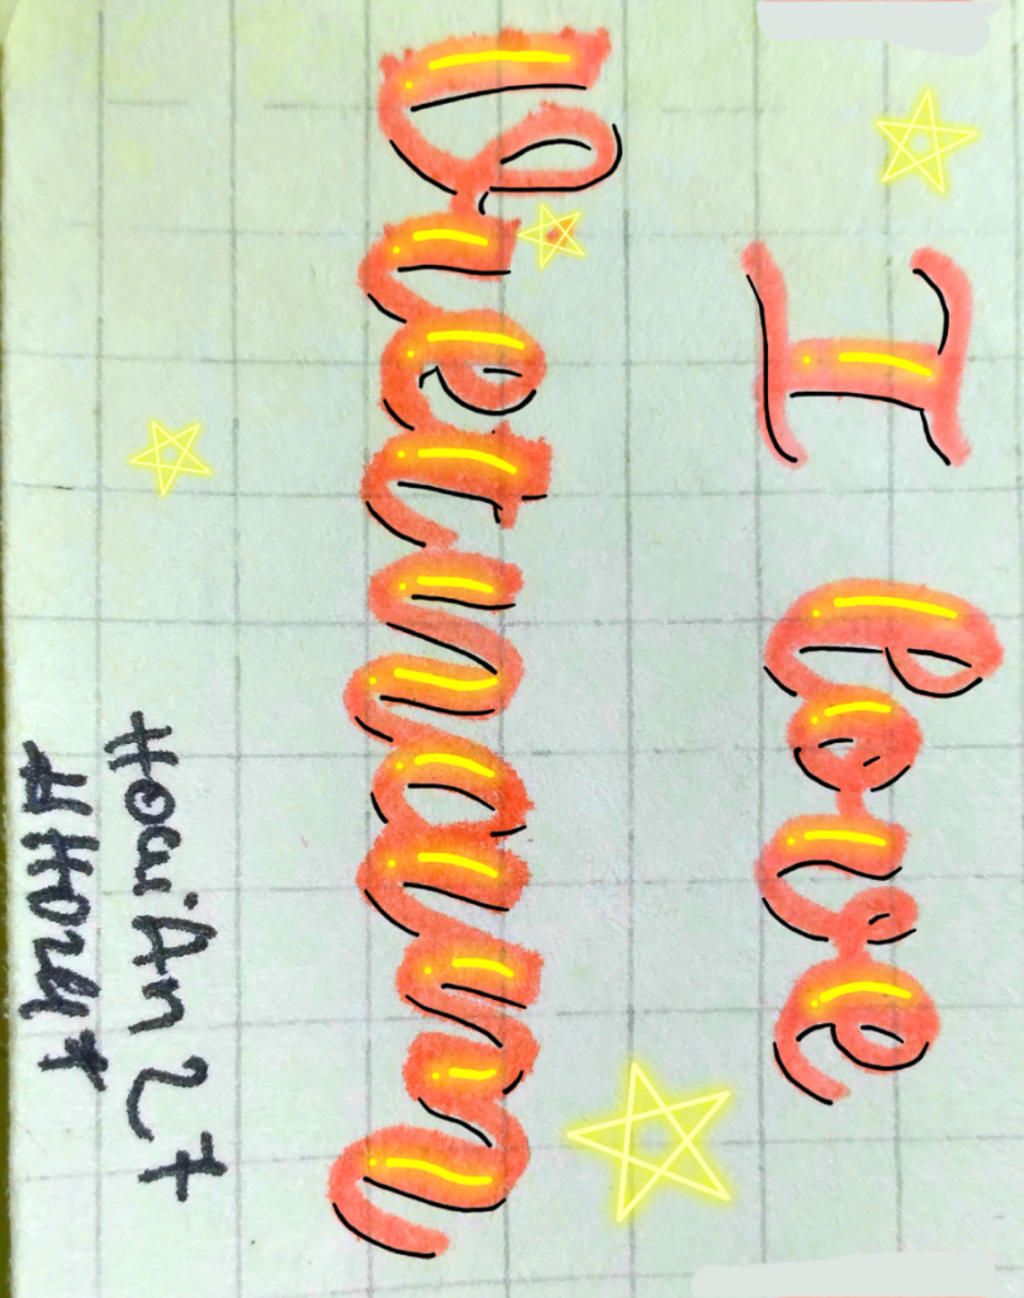 I love
Vietnam
HoaiAn 27